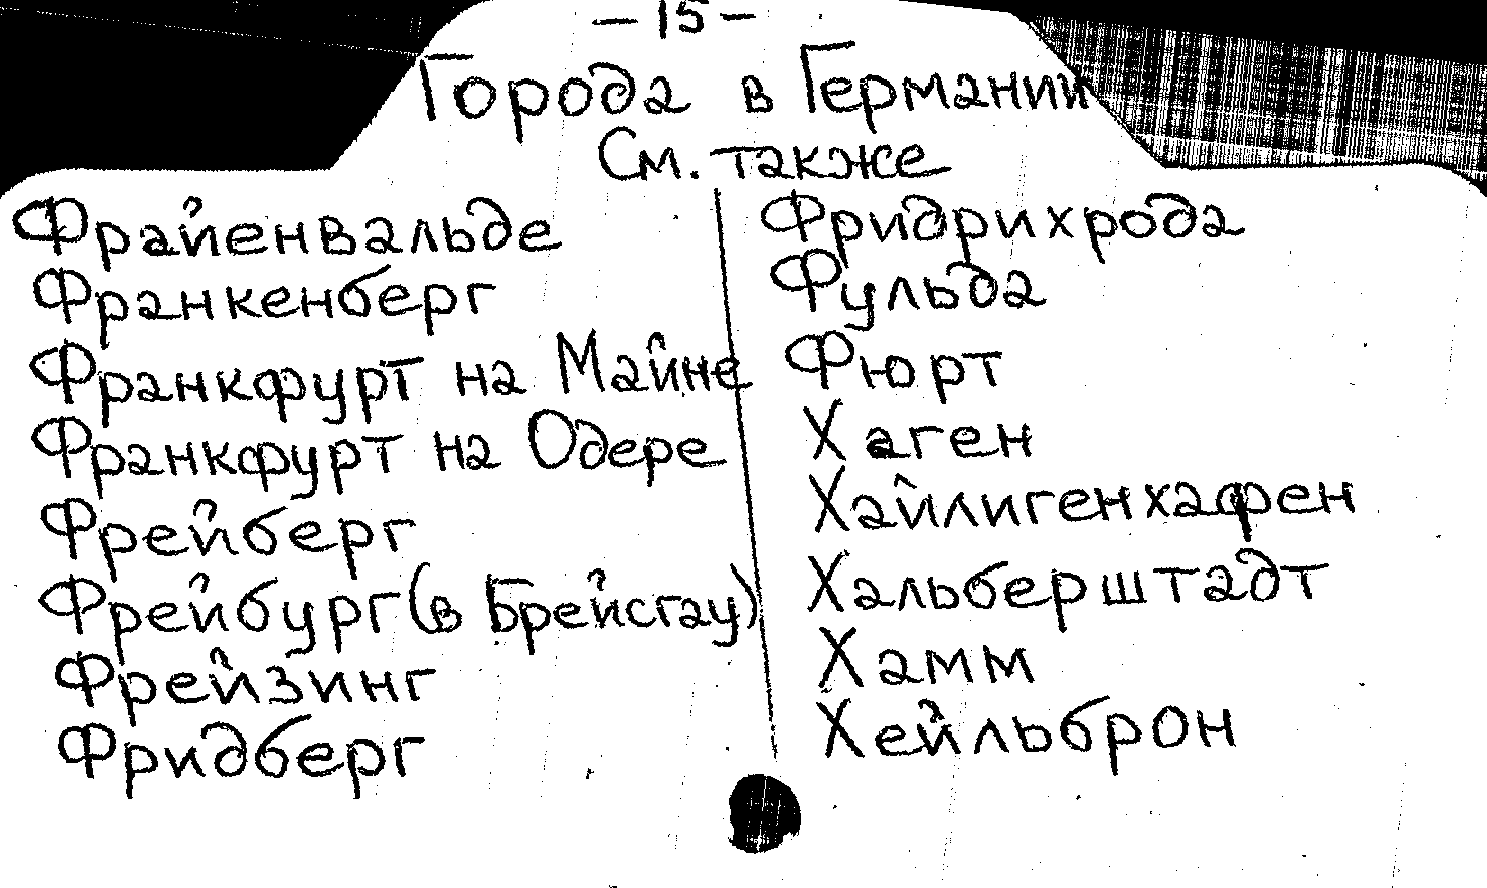 — 15 —
Города в Германии
См. также
Фрайенвальде
Франкенберг
Франкфурт на Майне
Франкфурт на Одере
Фрейберг
Фрейбург (в Брейсгау)
Фрейзинг
Фридберг
Фридрихрода
Фульда
Фюрт
Хаген
Хайлигенхафен
Хальберштадт
Хамм
Хейльброн